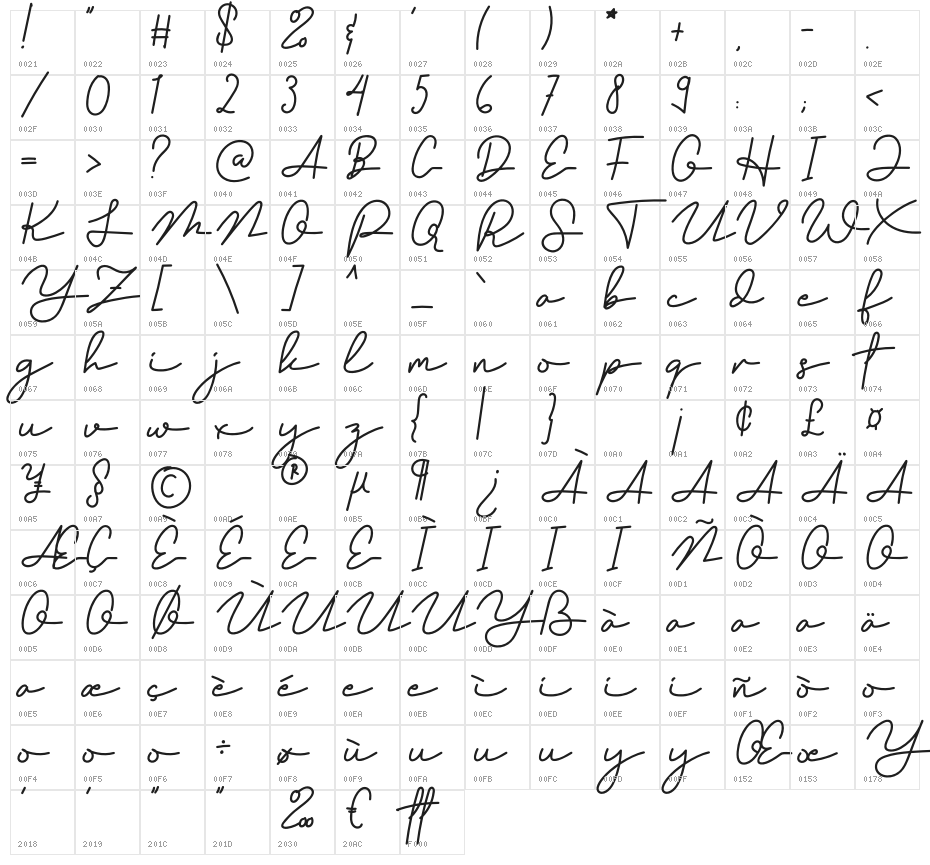 ! " # $ % & ' ( ) * + , - .
0021 0022 0023 0024 0025 0026 0027 0028 0029 002A 002B 002C 002D 002E
/ 0 1 2 3 4 5 6 7 8 9 : ; <
002F 0030 0031 0032 0033 0034 0035 0036 0037 0038 0039 003A 003B 003C
= > ? @ A B C D E F G H I J
003D 003E 003F 0040 0041 0042 0043 0044 0045 0046 0047 0048 0049 004A
K L M N O P Q R S T U V W X
004B 004C 004D 004E 004F 0050 0051 0052 0053 0054 0055 0056 0057 0058
Y Z [ \ ] ^ _ ` a b c d e f
0059 005A 005B 005C 005D 005E 005F 0060 0061 0062 0063 0064 0065 0066
g h i j k l m n o p q r s t
0067 0068 0069 006A 006B 006C 006D 006E 006F 0070 0071 0072 0073 0074
u v w x y z { | } ¡ ¢ £ ¤
0075 0076 0077 0078 0079 007A 007B 007C 007D 00A0 00A1 00A2 00A3 00A4
¥ § © ® µ ¶ ¿ À A A A Ä A
00A5 00A7 00A9 00AD 00AE 00B5 00B6 00BF 00C0 00C1 00C2 00C3 00C4 00C5
Æ Ç È É E E Ì I I I Ñ Ò O O
00C6 00C7 00C8 00C9 00CA 00CB 00CC 00CD 00CE 00CF 00D1 00D2 00D3 00D4
O O Ø Ù U U U Y ß à a a a ä
00D5 00D6 00D8 00D9 00DA 00DB 00DC 00DD 00DF 00E0 00E1 00E2 00E3 00E4
a æ ç è é e e ì i i i ñ ò o
00E5 00E6 00E7 00E8 00E9 00EA 00EB 00EC 00ED 00EE 00EF 00F1 00F2 00F3
o o o ÷ ø ù u u u y y Œ œ Y
00F4 00F5 00F6 00F7 00F8 00F9 00FA 00FB 00FC 00FD 00FF 0152 0153 0178
‘ ’ “ ” ‰ € tt
2018 2019 201C 201D 2030 20AC F000